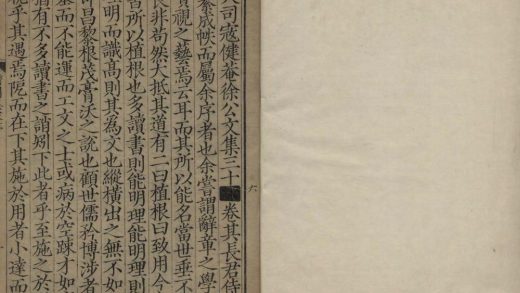 司寇健菴徐公文集三十 卷其長君侍
彙成帙而屬余序者也余嘗謂辭章之學
視之藝焉云耳而其所以能名當世垂不
非苟然大抵其道有二曰植根曰致用今
所以植根也多讀書則能明理能明理則
明而識高則其爲文也縱橫出之無不如
昌黎根茂膏沃之說也顧世儒於博涉者
而不能運而工文之士或病於空踈才如
有不多讀書之誚矧下此者乎至施之於
乎其遇焉阨而在下其施於用者小達而